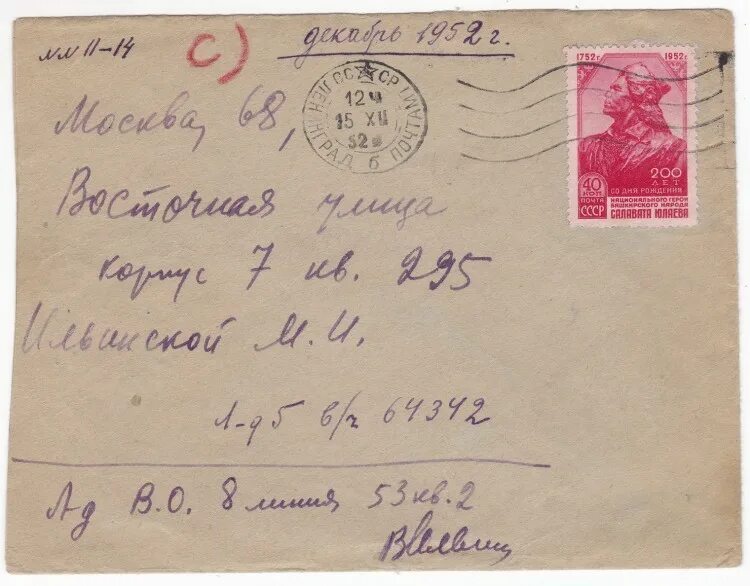 мм 11-14
с)
декабрь 1952 г.
СССР
ЛЕНИНГРАД 6 ПОЧТАМТ
12 Ч
15 XII
52
1752 г. 1952 г.
200
ЛЕТ
СО ДНЯ РОЖДЕНИЯ
НАЦИОНАЛЬНОГО ГЕРОЯ
БАШКИРСКОГО НАРОДА
САЛАВАТА ЮЛАЕВА
40 КОП
ПОЧТА
СССР
Москва, 68,
Восточная улица
корпус 7 кв. 295
Ильинской М. И.
Л-д 5 в/ч 64342
Л-д В.О. 8 линия 53 кв. 2